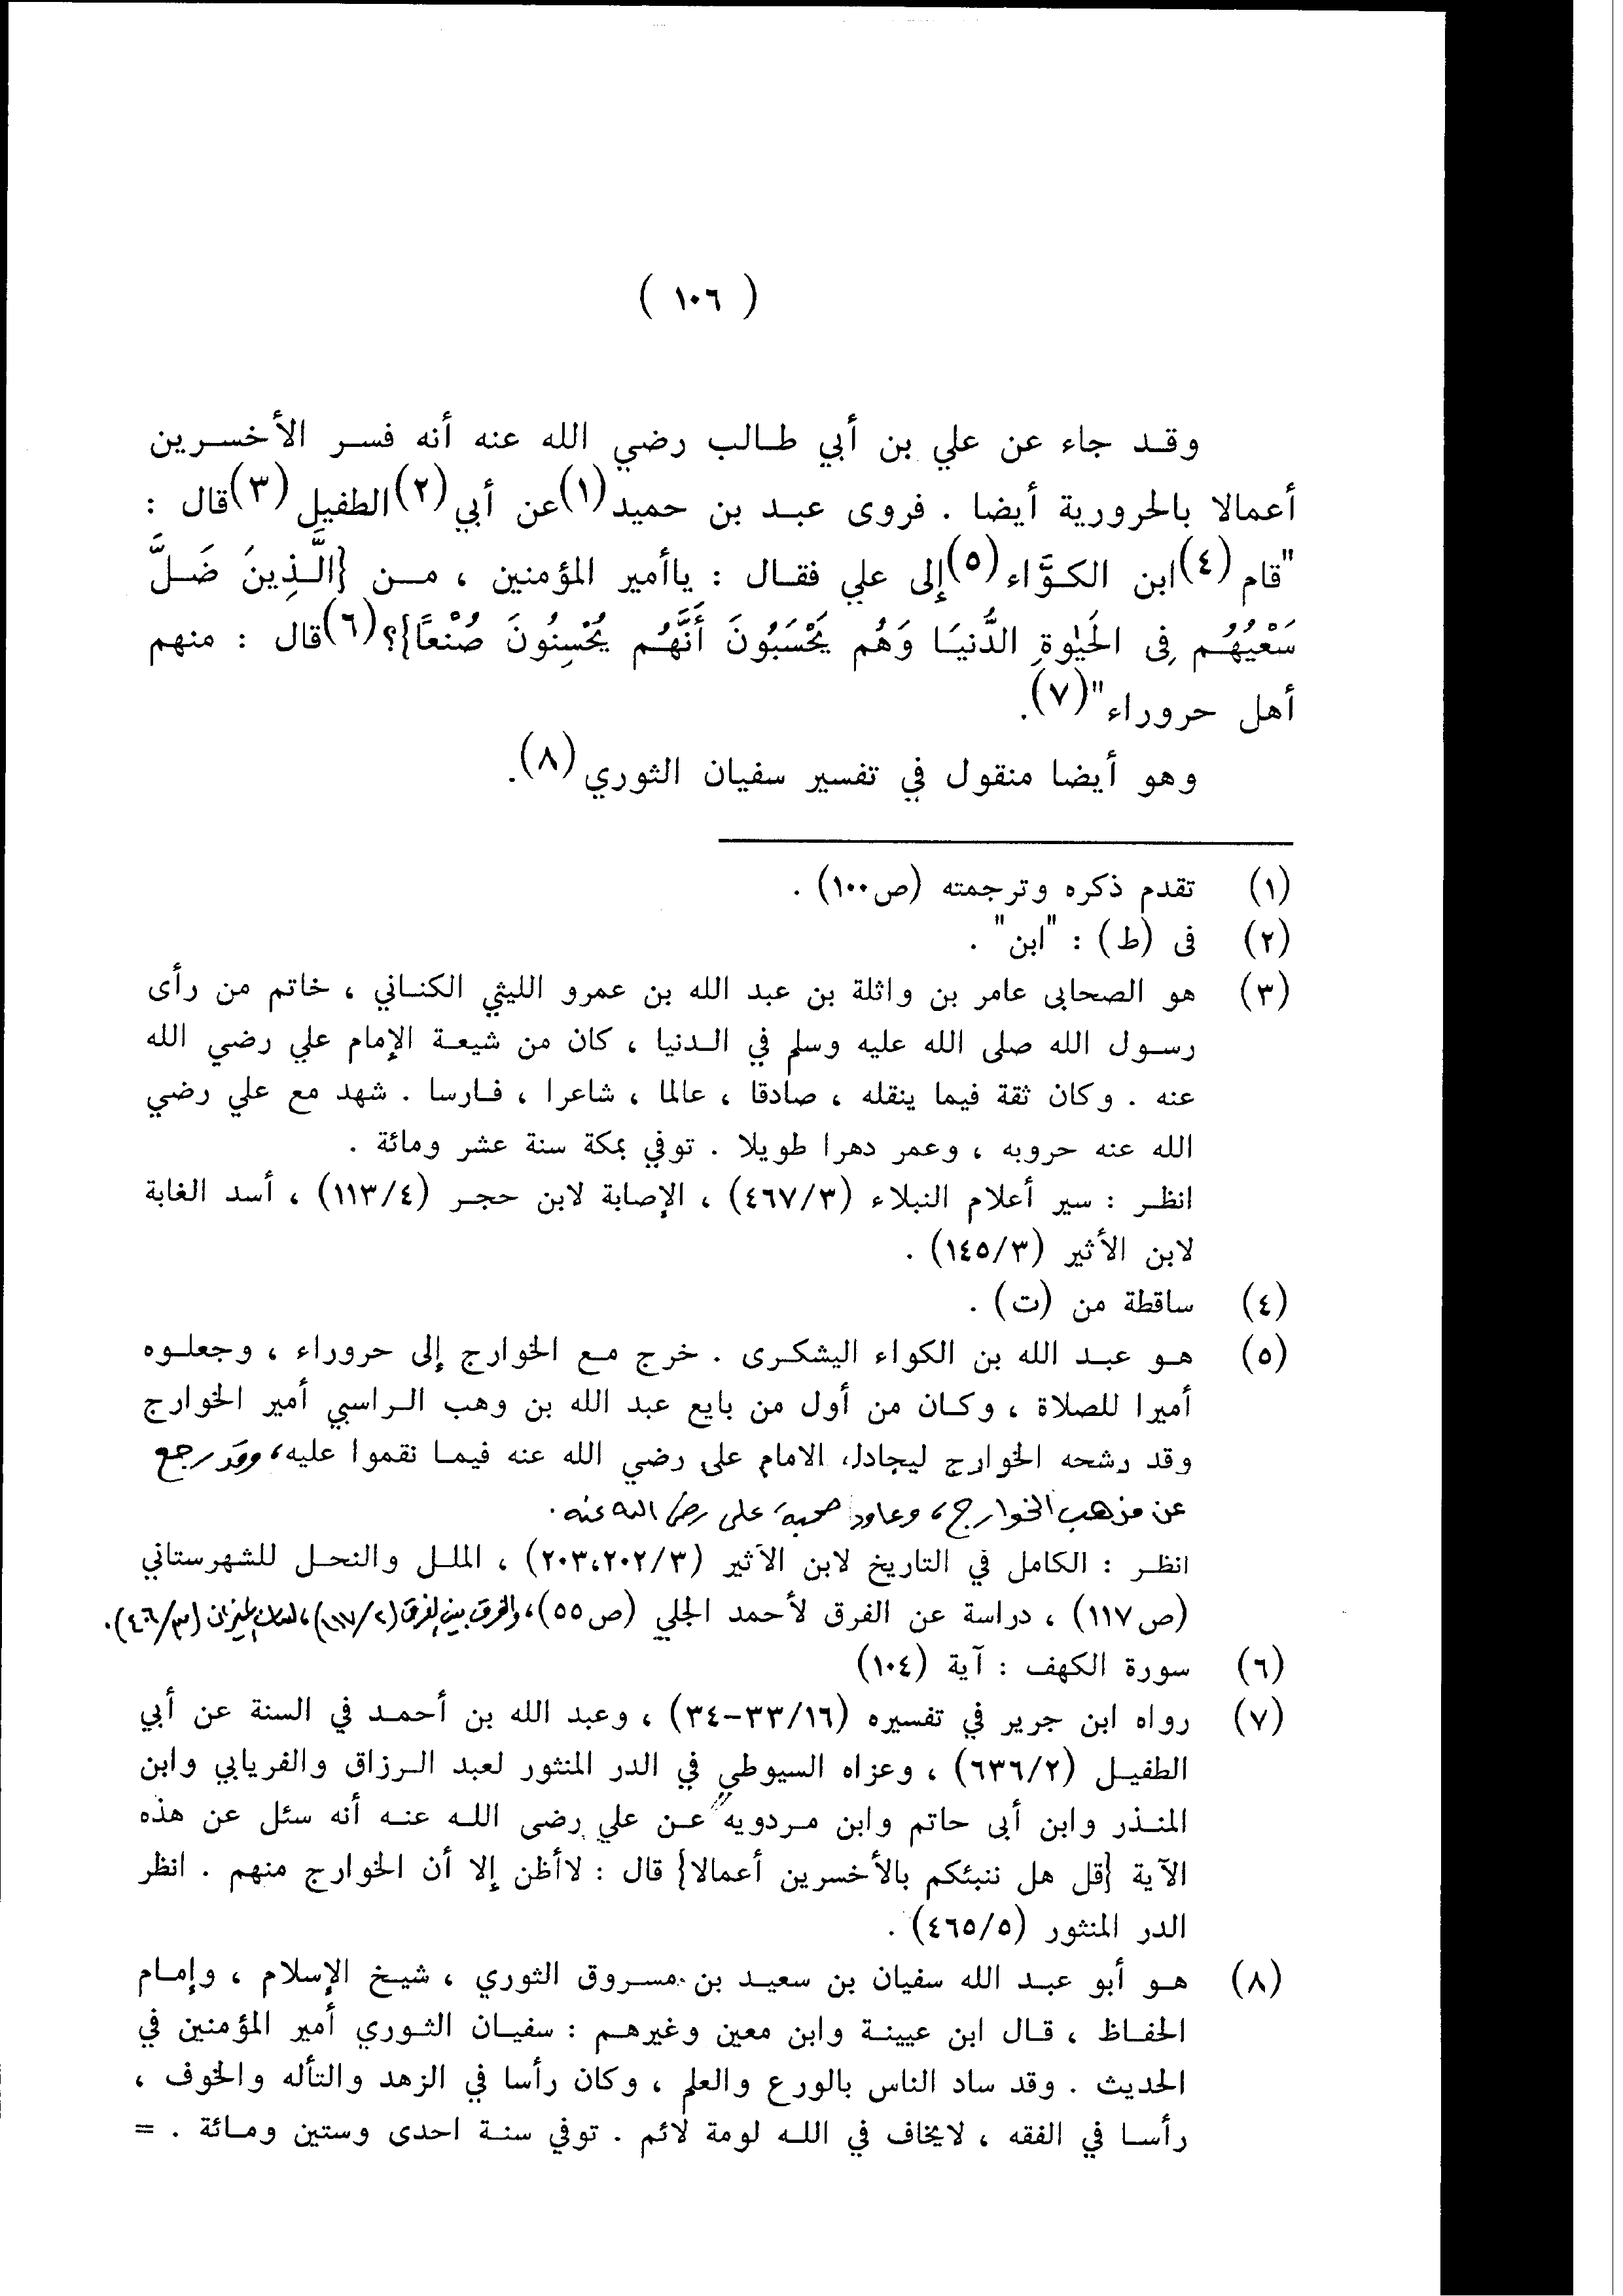 ( ١٠٦ )
وقـد جاء عن علي بن أبي طـالب رضي الله عنه أنه فسر الأخسـرين
أعمالا بالحرورية أيضا . فروى عبـد بن حميد(١)عن أبي(٢)الطفيل(٣)قال :
"قام(٤)ابن الكـوَّاء(٥)إلى علي فقـال : ياأمير المؤمنين ، مـن {الَّـذِينَ ضَـلَّ
سَعْيُهُـم فِى الحَيٰوةِ الدُّنيَـا وَهُم يَحْسَبُونَ أَنَّهُـم يُحْسِنُونَ صُنْعاً}؟(٦)قال : منهم
أهل حروراء"(٧).
وهو أيضا منقول في تفسير سفيان الثوري(٨).
(١) تقدم ذكره وترجمته (ص١٠٠) .
(٢) فى (ط) : "ابن" .
(٣) هو الصحابى عامر بن واثلة بن عبد الله بن عمرو الليثي الكنـاني ، خاتم من رأى
رسـول الله صلى الله عليه وسلم في الـدنيا ، كان من شيعـة الإمام علي رضي الله
عنه . وكان ثقة فيما ينقله ، صادقا ، عالما ، شاعرا ، فـارسا . شهد مع علي رضي
الله عنه حروبه ، وعمر دهرا طويلا . توفي بمكة سنة عشر ومائة .
انظـر : سير أعلام النبلاء (٤٦٧/٣) ، الإصابة لابن حجـر (١١٣/٤) ، أسد الغابة
لابن الأثير (١٤٥/٣) .
(٤) ساقطة من (ت) .
(٥) هـو عبـد الله بن الكواء اليشكـرى . خرج مـع الخوارج إلى حروراء ، وجعلـوه
أميرا للصلاة ، وكـان من أول من بايع عبد الله بن وهب الـراسبي أمير الخوارج
وقد رشحه الخوارج ليجادل الامام على رضي الله عنه فيمـا نقموا عليه، وقد رجع
عن مذهب الخوارج، وعاود صحبة على رضى الله عنه .
انظـر : الكامل في التاريخ لابن الأثير (٢٠٣،٢٠٢/٣) ، الملـل والنحـل للشهرستاني
(ص١١٧) ، دراسة عن الفرق لأحمد الجلي (ص٥٥)، والفرق بين الفرق (١١٧/٢)، لسان الميزان (٤٠٦/٣).
(٦) سورة الكهف : آية (١٠٤)
(٧) رواه ابن جرير في تفسيره (٣٣/١٦-٣٤) ، وعبد الله بن أحمـد في السنة عن أبي
الطفيـل (٦٣٦/٢) ، وعزاه السيوطي في الدر المنثور لعبد الـرزاق والفريابي وابن
المنـذر وابن أبى حاتم وابن مـردويه" عـن علي رضى اللـه عنـه أنه سئل عن هذه
الآية {قل هل ننبئكم بالأخسرين أعمالا} قال : لاأظن إلا أن الخوارج منهم . انظر
الدر المنثور (٤٦٥/٥) .
(٨) هـو أبو عبـد الله سفيان بن سعيـد بن مسـروق الثوري ، شيـخ الإسلام ، وإمـام
الحفـاظ ، قـال ابن عيينـة وابن معين وغيرهـم : سفيـان الثـوري أمير المؤمنين في
الحديث . وقد ساد الناس بالورع والعلم ، وكان رأسا في الزهد والتأله والخوف ،
رأسـا في الفقه ، لايخاف في اللـه لومة لائم . توفي سنـة احدى وستين ومـائة . =